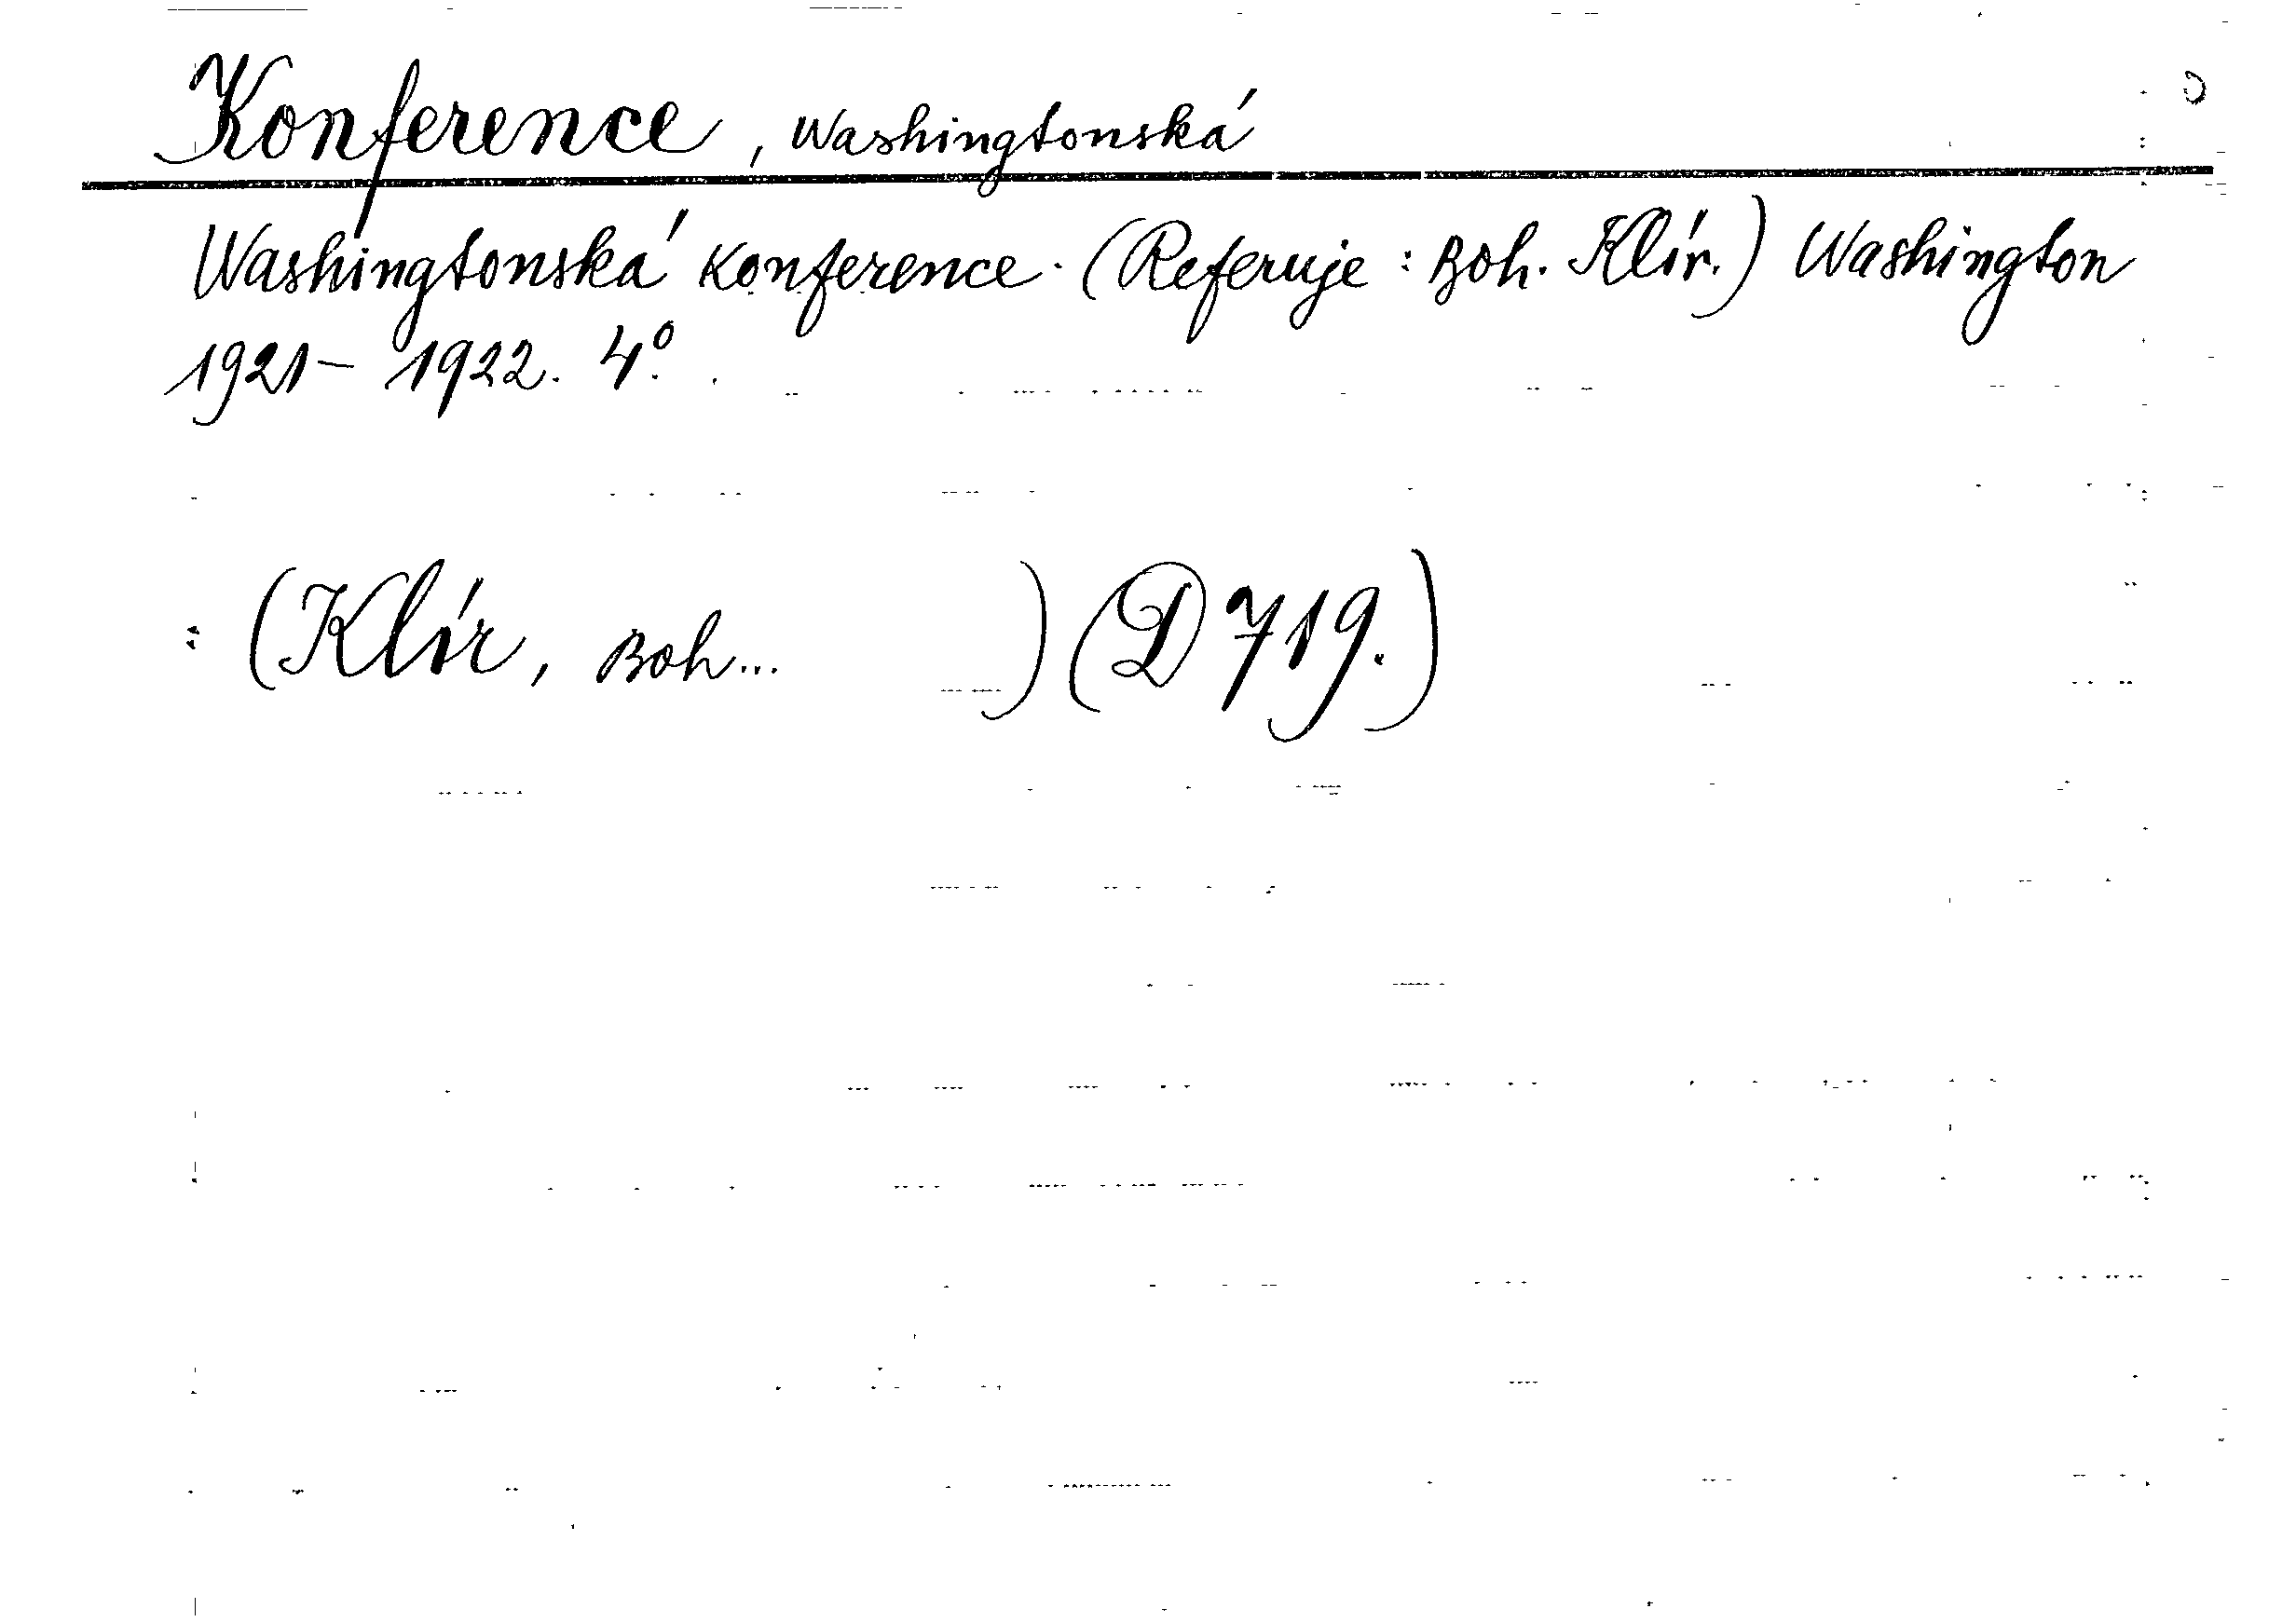 Konference, Washingtonská
Washingtonská konference. (Referuje: Boh. Klír.) Washington
1921 – 1922. 4°.
: (Klír, Boh... ) (D 719.)